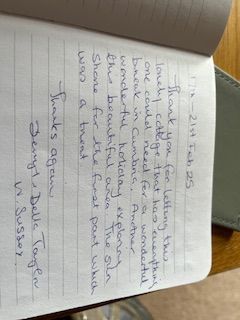 17th - 21st Feb 25
Thank you for letting this
lovely cottage that has everything
one could need for a wonderful
break in Cumbria. Another
wonderful holiday exploring
this beautiful area. The sun
shone for the first part which
was a treat
Thanks again
Derryl & Della Taylor
W Sussex